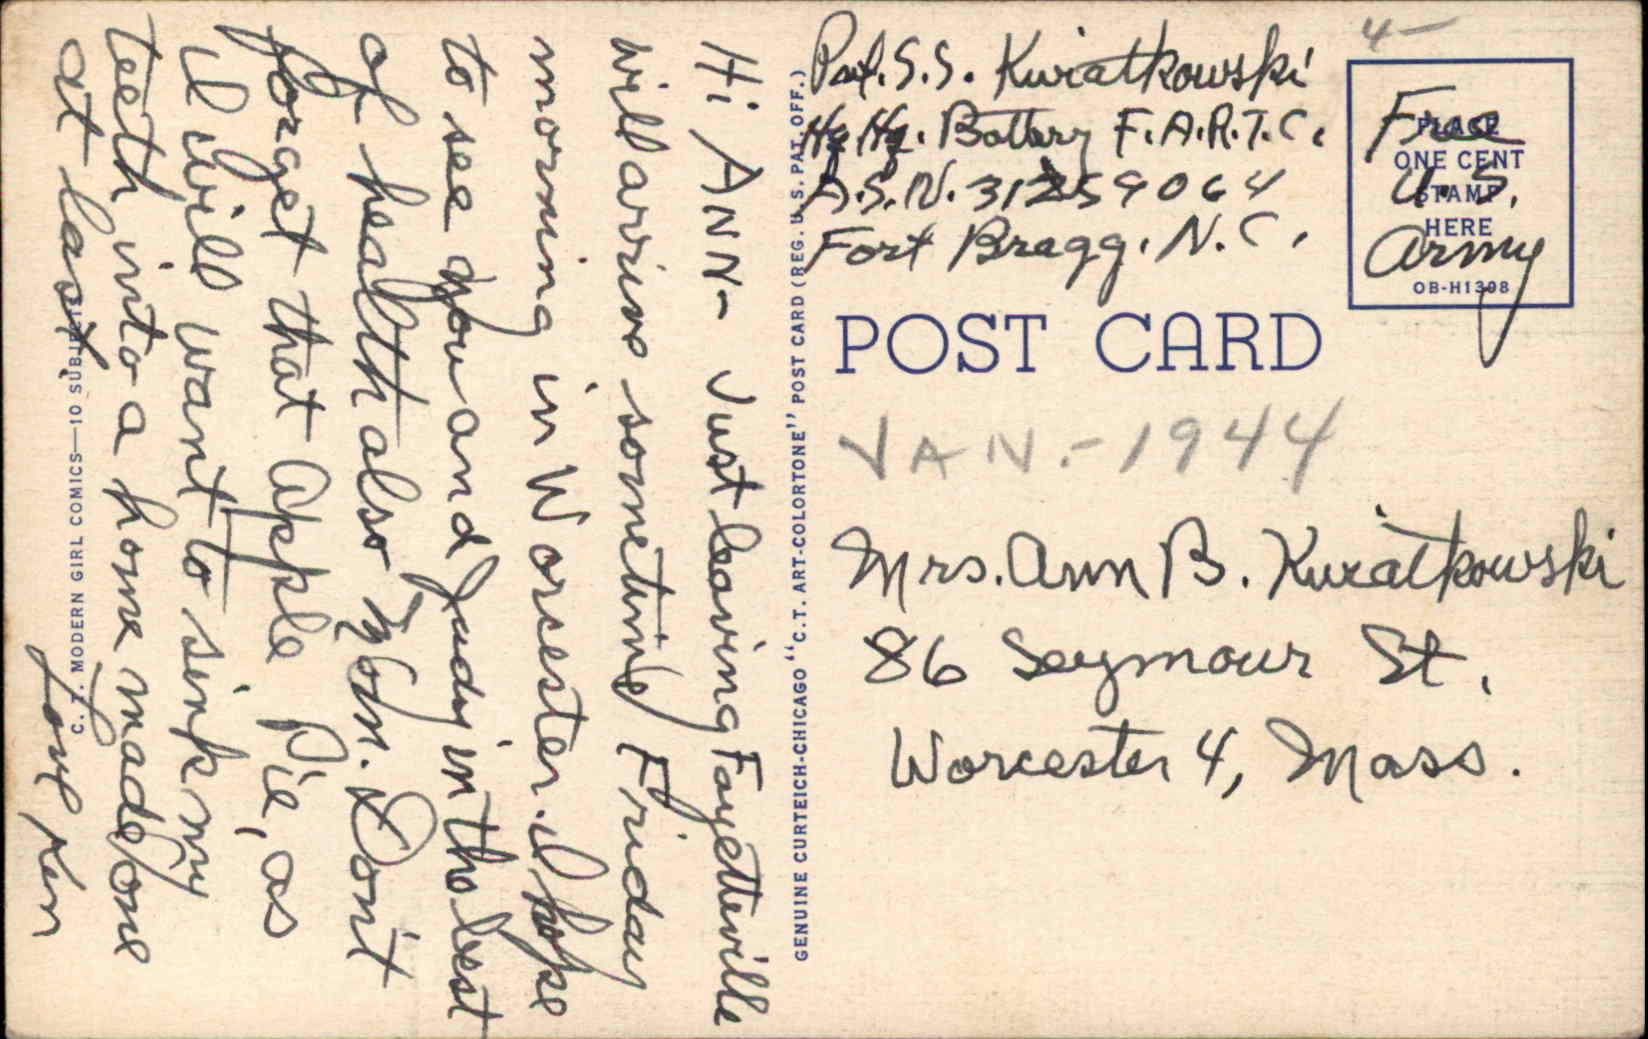 Hi ANN- Just leaving Fayetteville
will arrive sometime Friday
morning in Worcester. I hope
to see you and Judy in the best
of health also Mom. Don't
forget that Apple Pie, as
I will want to sink my
teeth into a home made one
at last.
Love Ken
C. T. MODERN GIRL COMICS—10 SUBJECTS
GENUINE CURTEICH-CHICAGO "C.T. ART-COLORTONE" POST CARD (REG. U.S. PAT. OFF.)
Pvt. S.S. Kwiatkowski
Hq Hq. Battery F.A.R.T.C.
A.S.N. 31259064
Fort Bragg. N.C.
4-
Free
U.S.
Army
PLACE
ONE CENT
STAMP
HERE
OB-H1398
POST CARD
JAN.-1944
Mrs. Ann B. Kwiatkowski
86 Seymour St.
Worcester 4, Mass.